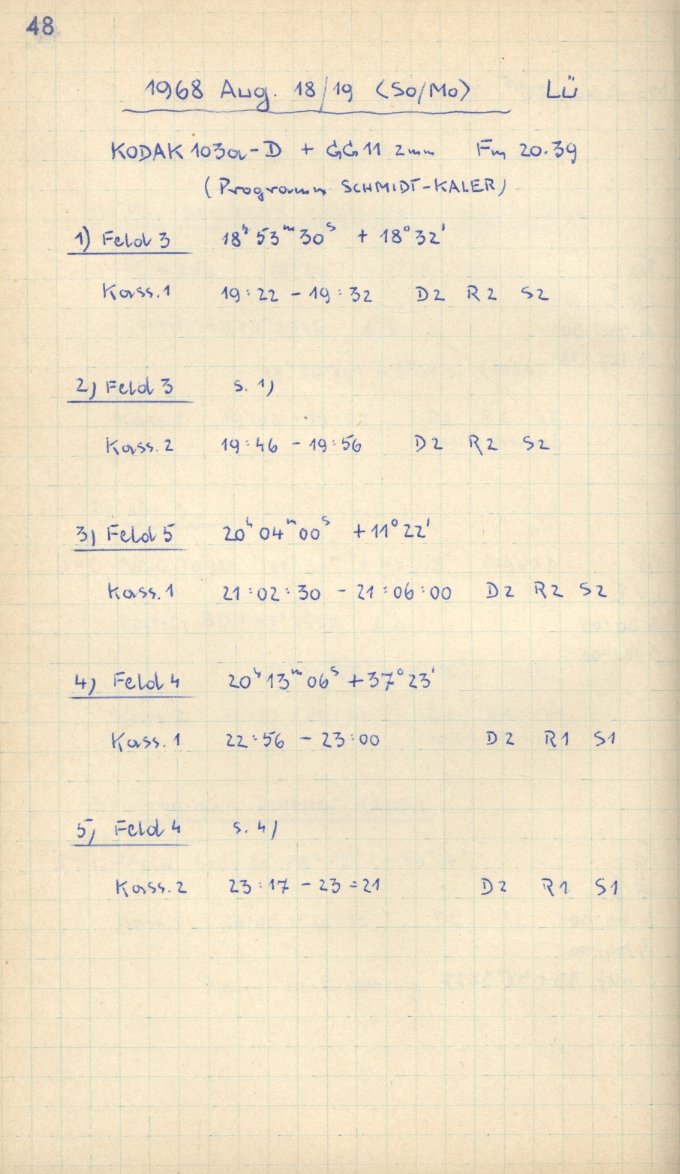 48
1968 Aug. 18/19 (So/Mo) Lü
KODAK 103a-D + GG11 2mm Fm 20.39
(Programm SCHMIDT-KALER)
1) Feld 3 18ʰ 53ᵐ 30ˢ + 18° 32'
Kass. 1 19:22 - 19:32 D2 R2 S2
2) Feld 3 s. 1)
Kass. 2 19:46 - 19:56 D2 R2 S2
3) Feld 5 20ʰ 04ᵐ 00ˢ + 11° 22'
Kass. 1 21:02:30 - 21:06:00 D2 R2 S2
4) Feld 4 20ʰ 13ᵐ 06ˢ + 37° 23'
Kass. 1 22:56 - 23:00 D2 R1 S1
5) Feld 4 s. 4)
Kass. 2 23:17 - 23:21 D2 R1 S1